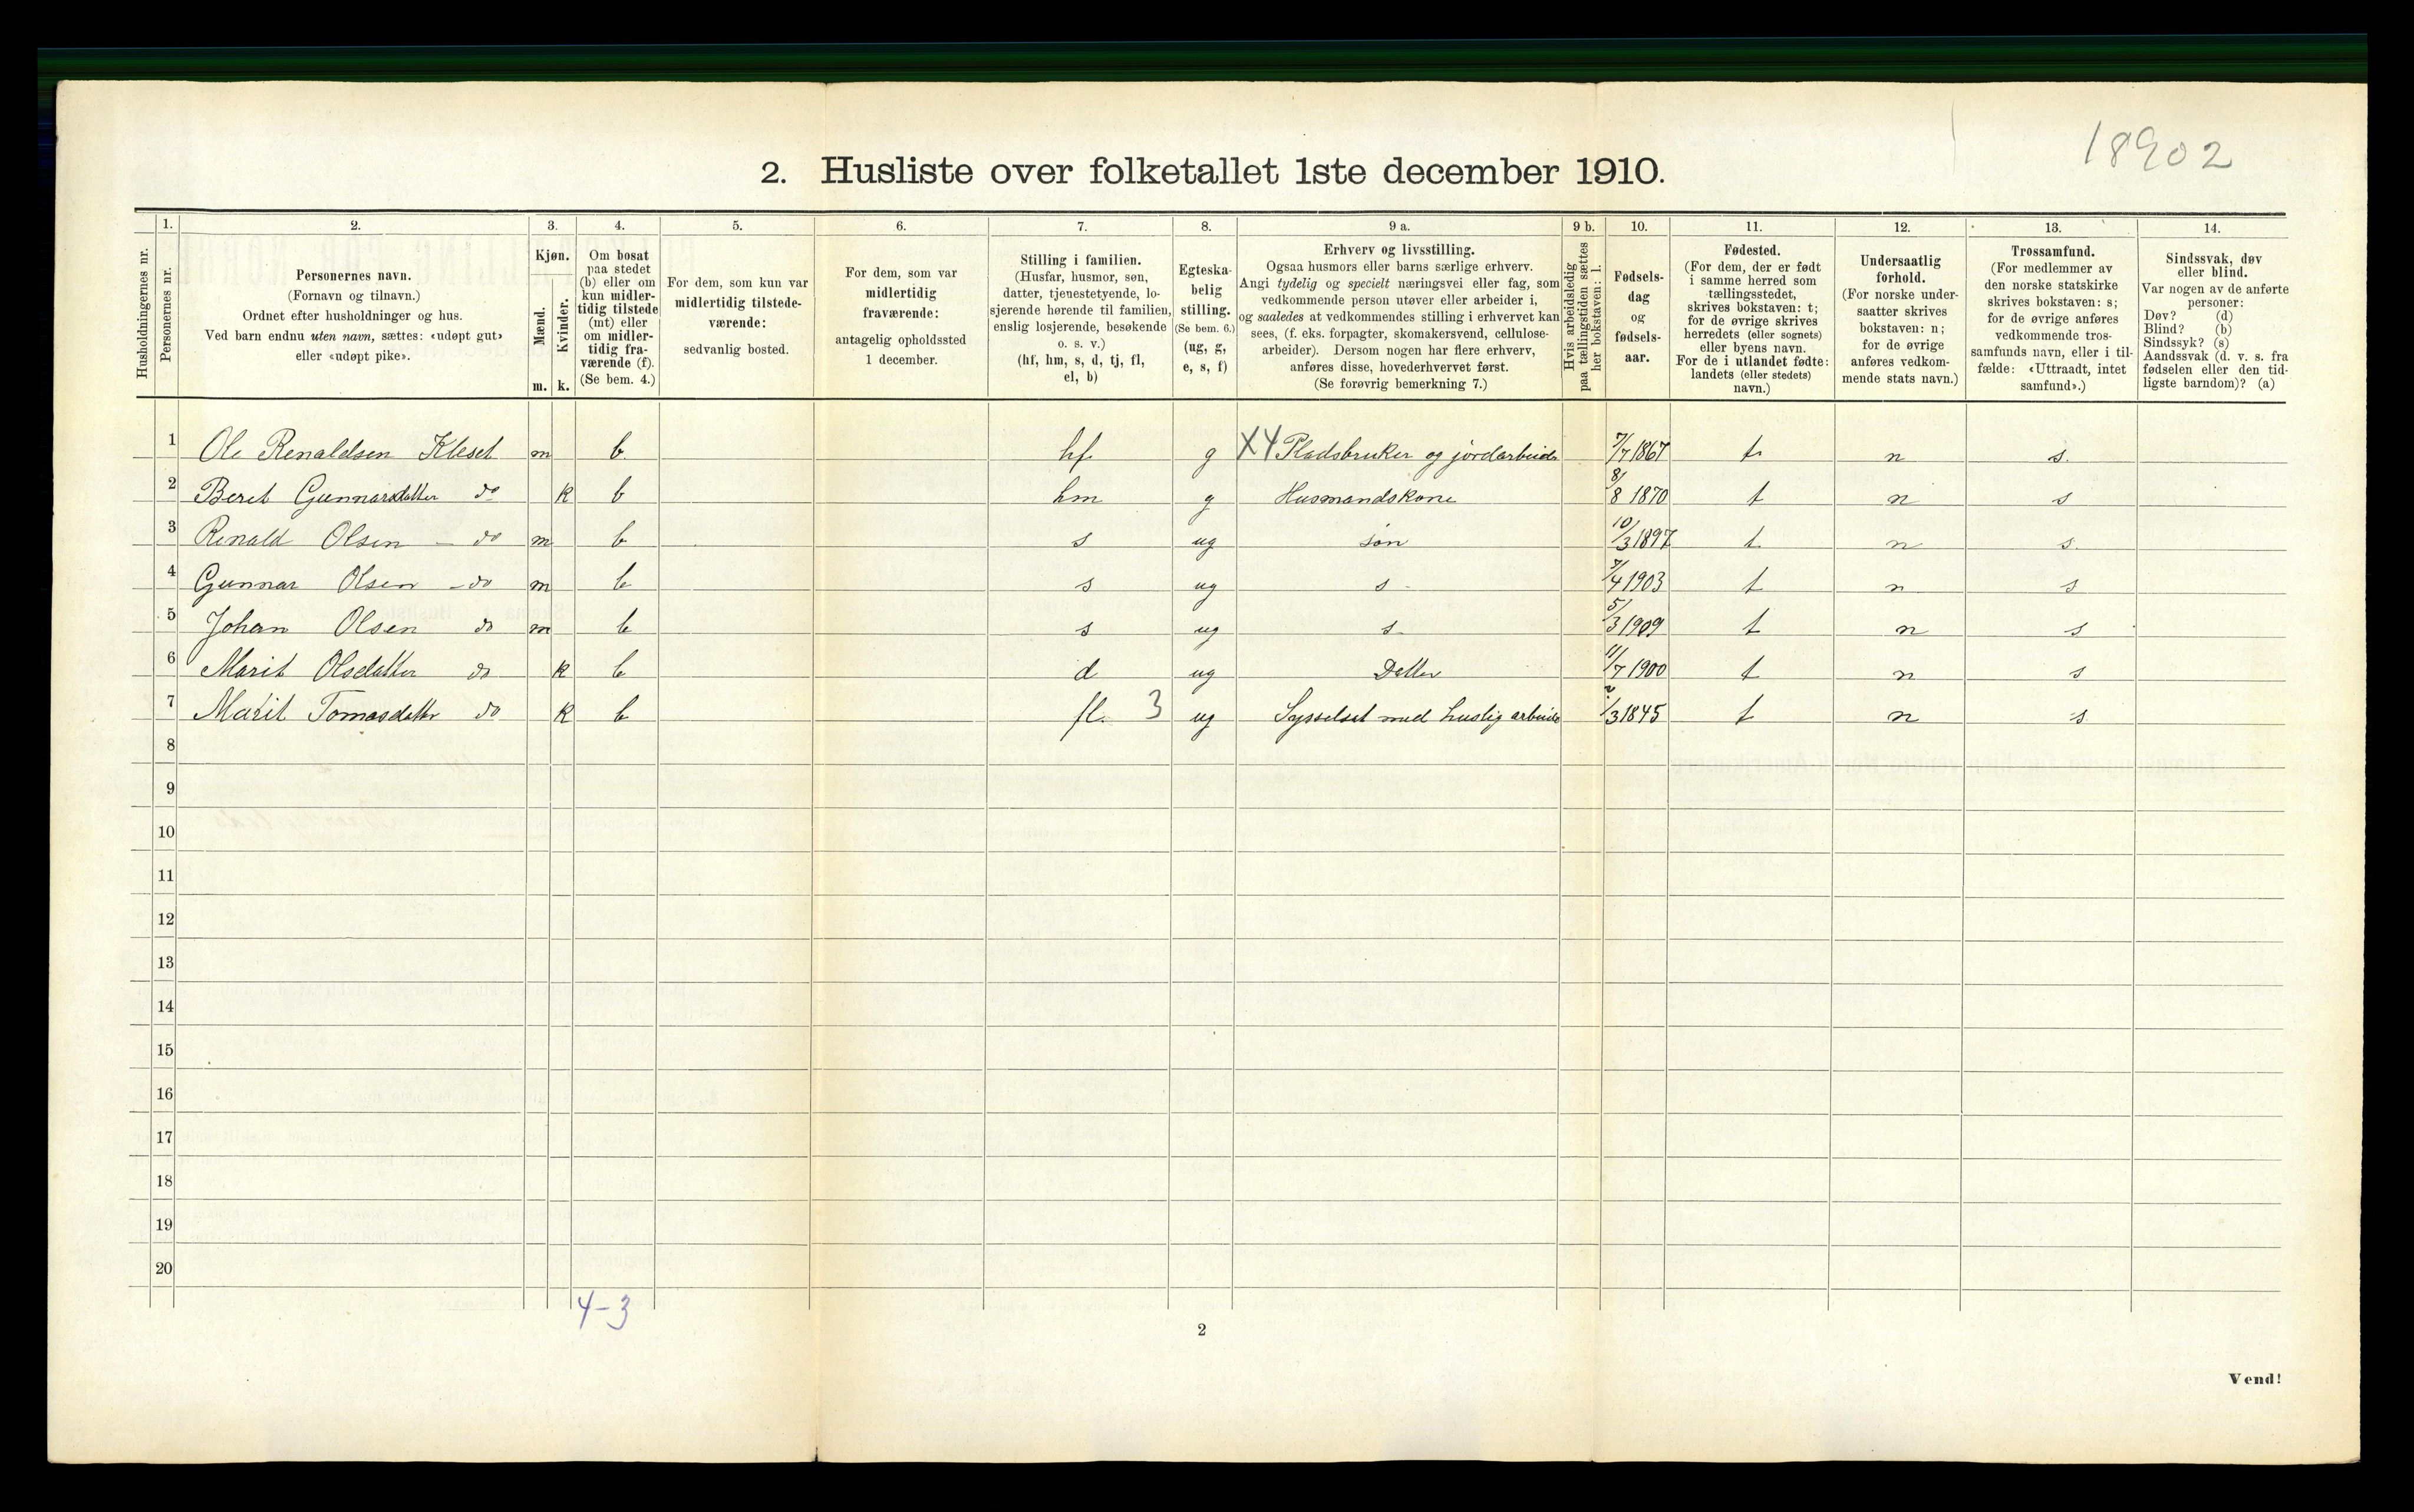 18902
2. Husliste over folketallet 1ste december 1910.
Husholdningernes nr.
1.
Personernes nr.
2.
Personernes navn.
(Fornavn og tilnavn.)
Ordnet efter husholdninger og hus.
Ved barn endnu uten navn, sættes: «udøpt gut»
eller «udøpt pike».
3.
Kjøn.
Mænd.
Kvinder.
m. k.
4.
Om bosat
paa stedet
(b) eller om
kun midler-
tidig tilstede
(mt) eller
om midler-
tidig fra-
værende (f).
(Se bem. 4.)
5.
For dem, som kun var
midlertidig tilstede-
værende:
sedvanlig bosted.
6.
For dem, som var
midlertidig
fraværende:
antagelig opholdssted
1 december.
7.
Stilling i familien.
(Husfar, husmor, søn,
datter, tjenestetyende, lo-
sjerende hørende til familien,
enslig losjerende, besøkende
o. s. v.)
(hf, hm, s, d, tj, fl,
el, b)
8.
Egteska-
belig
stilling.
(Se bem. 6.)
(ug, g,
e, s, f)
9 a.
Erhverv og livsstilling.
Ogsaa husmors eller barns særlige erhverv.
Angi tydelig og specielt næringsvei eller fag, som
vedkommende person utøver eller arbeider i,
og saaledes at vedkommendes stilling i erhvervet kan
sees, (f. eks. forpagter, skomakersvend, cellulose-
arbeider). Dersom nogen har flere erhverv,
anføres disse, hovederhvervet først.
(Se forøvrig bemerkning 7.)
9 b.
Hvis arbeidsledig
paa tællingstiden sættes
her bokstaven: l.
10.
Fødsels-
dag
og
fødsels-
aar.
11.
Fødested.
(For dem, der er født
i samme herred som
tællingsstedet,
skrives bokstaven: t;
for de øvrige skrives
herredets (eller sognets)
eller byens navn.
For de i utlandet fødte:
landets (eller stedets)
navn.)
12.
Undersaatlig
forhold.
(For norske under-
saatter skrives
bokstaven: n;
for de øvrige
anføres vedkom-
mende stats navn.)
13.
Trossamfund.
(For medlemmer av
den norske statskirke
skrives bokstaven: s;
for de øvrige anføres
vedkommende tros-
samfunds navn, eller i til-
fælde: «Uttraadt, intet
samfund».)
14.
Sindssvak, døv
eller blind.
Var nogen av de anførte
personer:
Døv? (d)
Blind? (b)
Sindssyk? (s)
Aandssvak (d. v. s. fra
fødselen eller den tid-
ligste barndom)? (a)
1 Ole Renaldsen Kleset m b hf g X4 Pladsbruker og jordarbeide 7/7 1867 t n s.
2 Beret Gunnarsdatter do k b hm g Husmandskone 8/8 1870 t n s
3 Renald Olsen - do m b s ug søn 10/3 1897 t n s.
4 Gunnar Olsen - do m b s ug s - 7/4 1903 t n s
5 Johan Olsen do m b s ug s - 5/3 1909 t n s
6 Marit Olsdatter do k b d ug Datter 11/7 1900 t n s
7 Marit Tomasdattr do k b fl. 3 ug Sysselsat med huslig arbeide /3 1845 t n s
8
9
10
11
12
13
14
15
16
17
18
19
20
4-3
2
Vend!